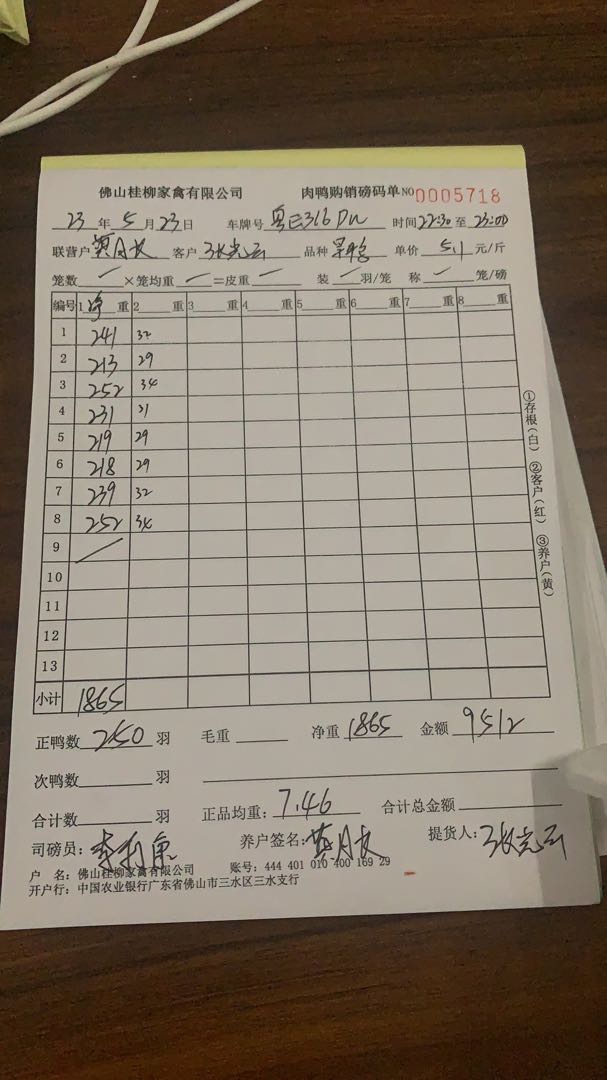 佛山桂柳家禽有限公司 肉鸭购销磅码单 NO 0005718
23 年 5 月 23 日 车牌号 粤E316DW 时间 22:30 至 23:00
联营户 客户 张光云 品种 单价 5.1 元/斤
笼数 ×笼均重 =皮重 装 羽/笼 称 笼/磅
编号 1 净 重 2 重 3 重 4 重 5 重 6 重 7 重 8 重
1 241 32
2 213 29
3 252 34
4 231 31
5 219 29
6 218 29
7 239 32
8 252 34
9
10
11
12
13
小计 1865
正鸭数 250 羽 毛重 净重 1865 金额 9512
次鸭数 羽
合计数 羽 正品均重: 7.46 合计总金额
司磅员: 养户签名: 提货人: 张光云
户 名: 佛山桂柳家禽有限公司 账号: 444 401 010 400 169 29
开户行: 中国农业银行广东省佛山市三水区三水支行
①存根(白) ②客户(红) ③养户(黄)